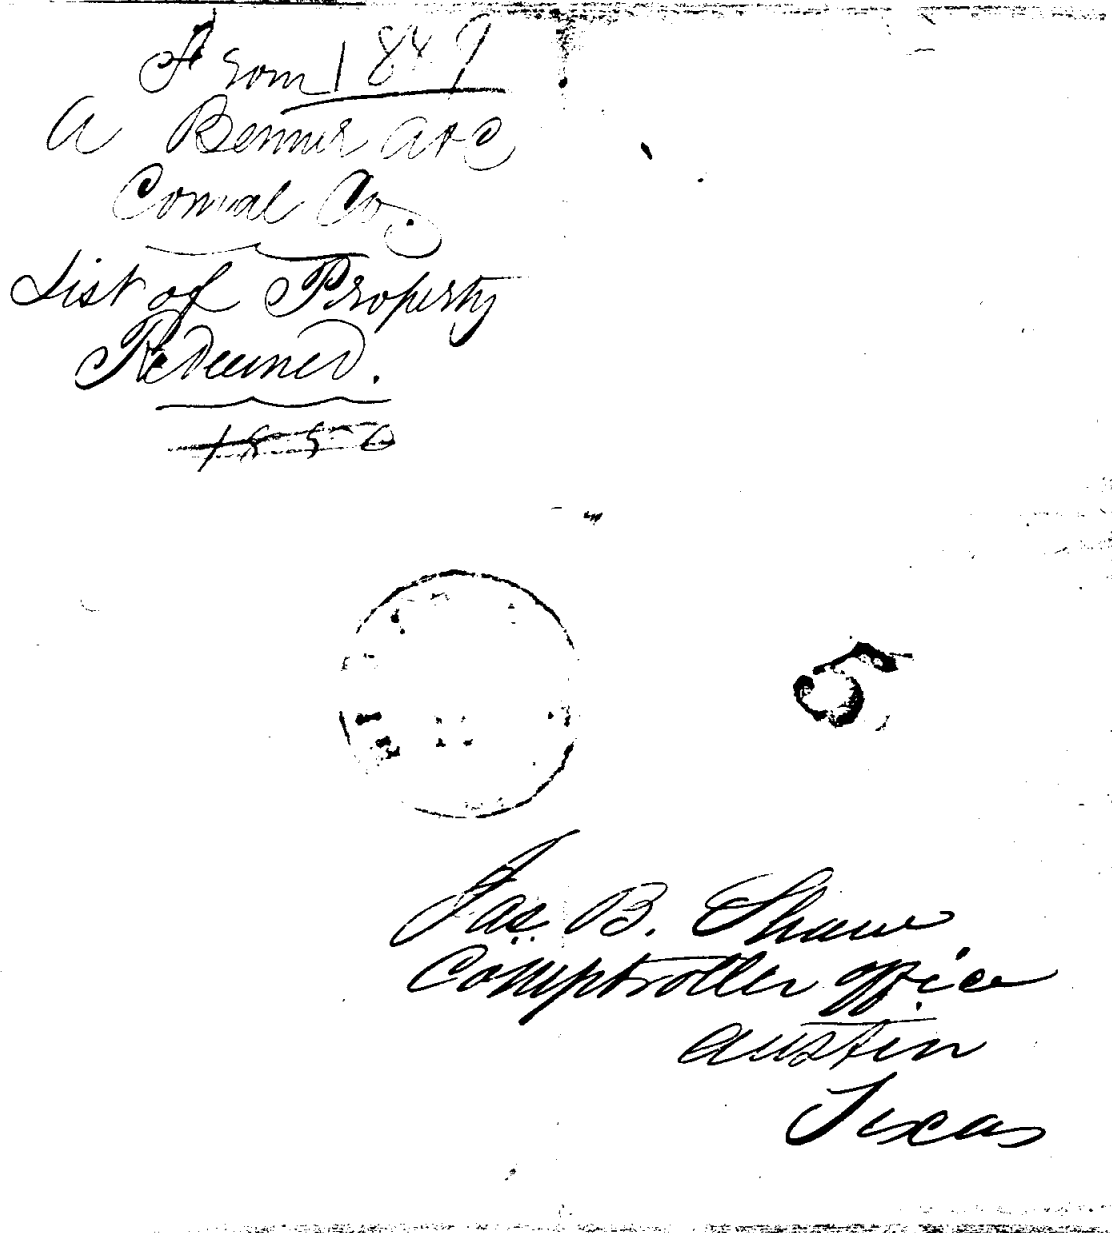 From 1849
A Benner A & C
Comal Co.
List of Property
Redeemed.
1850
5
Jas. B. Shaw
Comptroller office
Austin
Texas